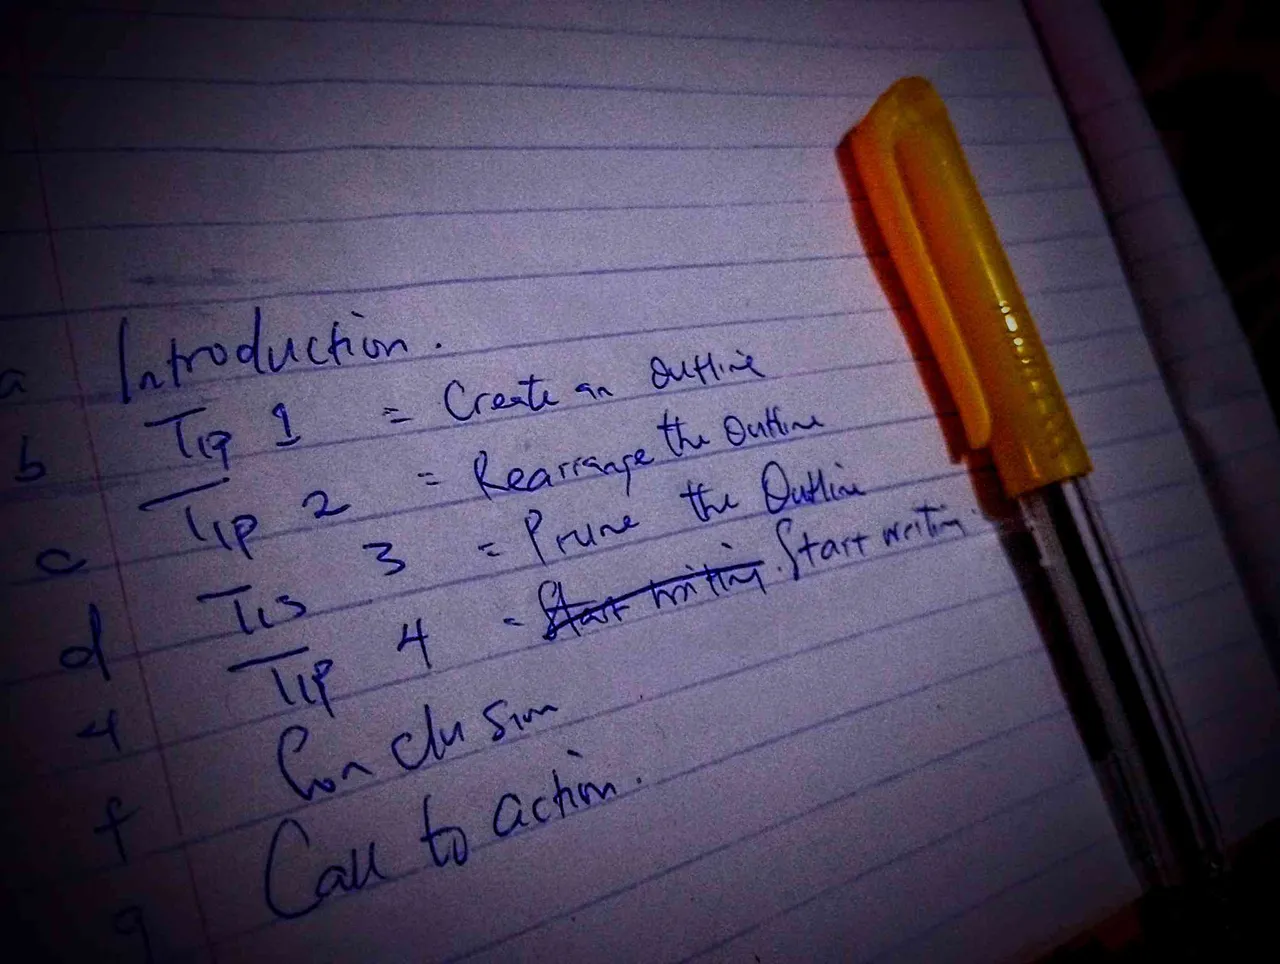 a Introduction.
b Tip 1 = Create an outline
c Tip 2 = Rearrange the Outline
d Tis 3 = Prune the Outline
Tip 4 - Start writing. Start writing.
f Conclusion
g Call to action.